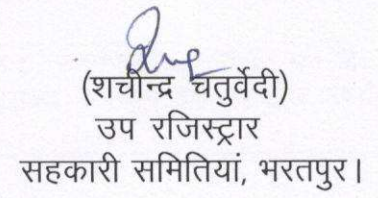 (शचीन्द्र चतुर्वेदी)
उप रजिस्ट्रार
सहकारी समितियां, भरतपुर।